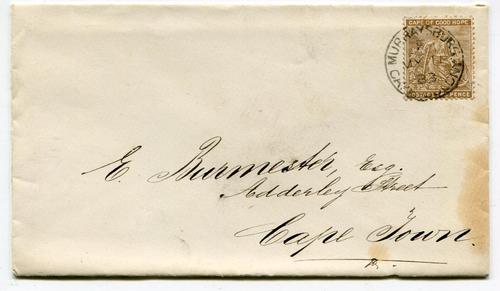 CAPE OF GOOD HOPE
MURRAYSBURG
83
POSTAGE PENCE
E. Burmester, Esq.
Adderley Street
Cape Town.